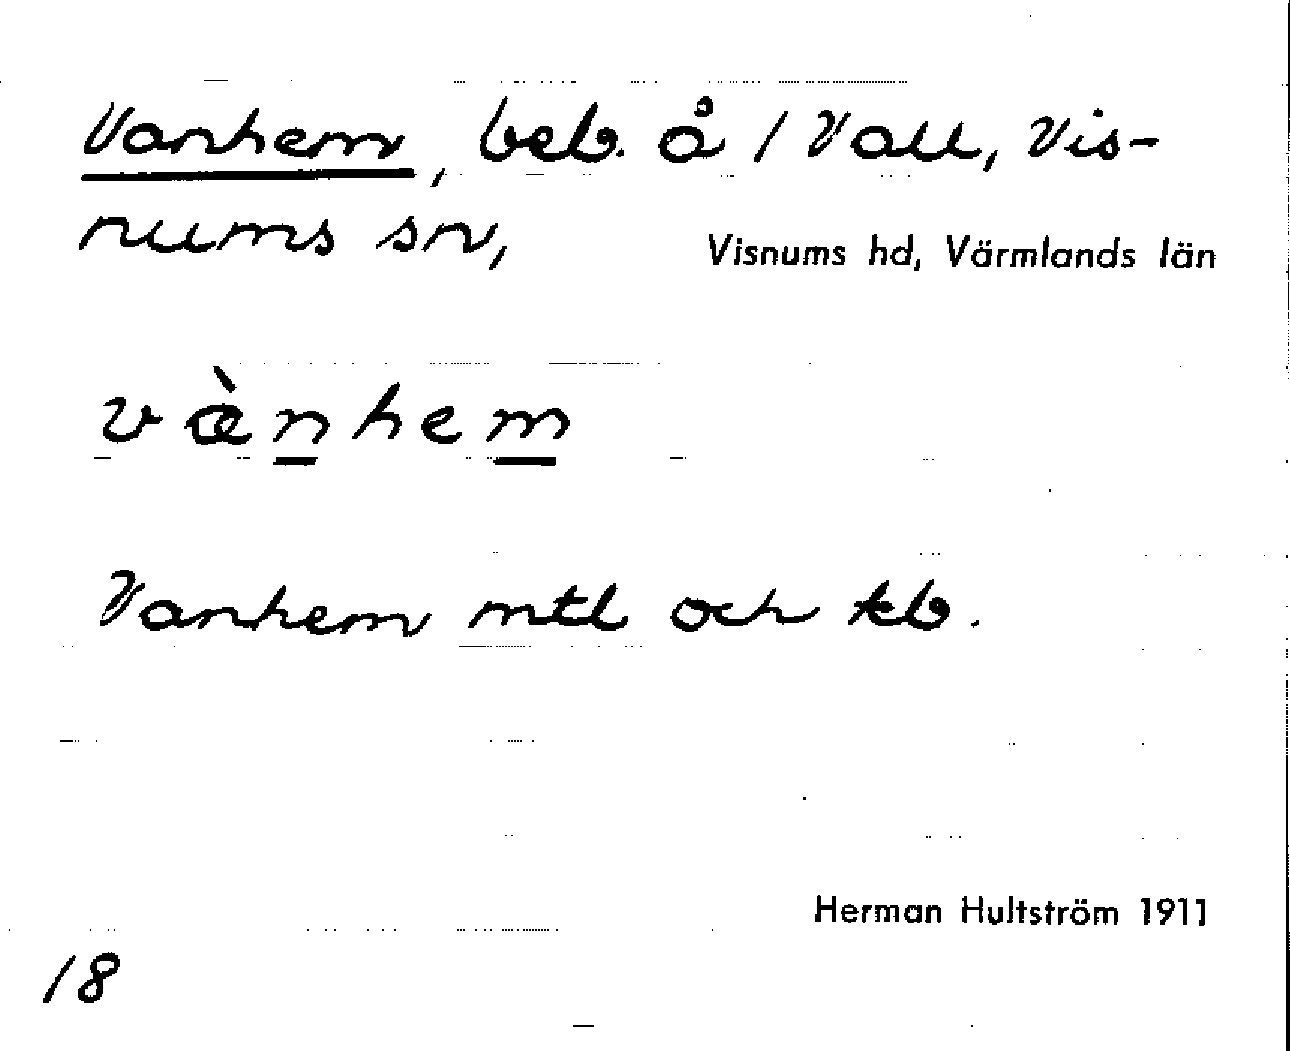 Vanhem, beb. å 1 Vall, Vis-
nums sn, Visnums hd, Värmlands län
væ̀nhem
Vanhem mtl och kb.
Herman Hultström 1911
18